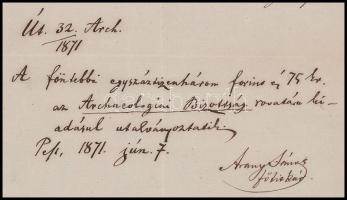 Üt. 32. Arch.
1871
A föntebbi egyszáztizenhárom forint és 75 kr.
az Archaeologiai Bizottság rovatára ki-
adásul utalványoztatik.
Pest, 1871. jún. 7.
Arany János
főtitkár